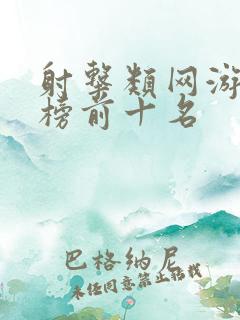 射擊類网游
榜前十名
巴格纳尼
未经同意禁止转载